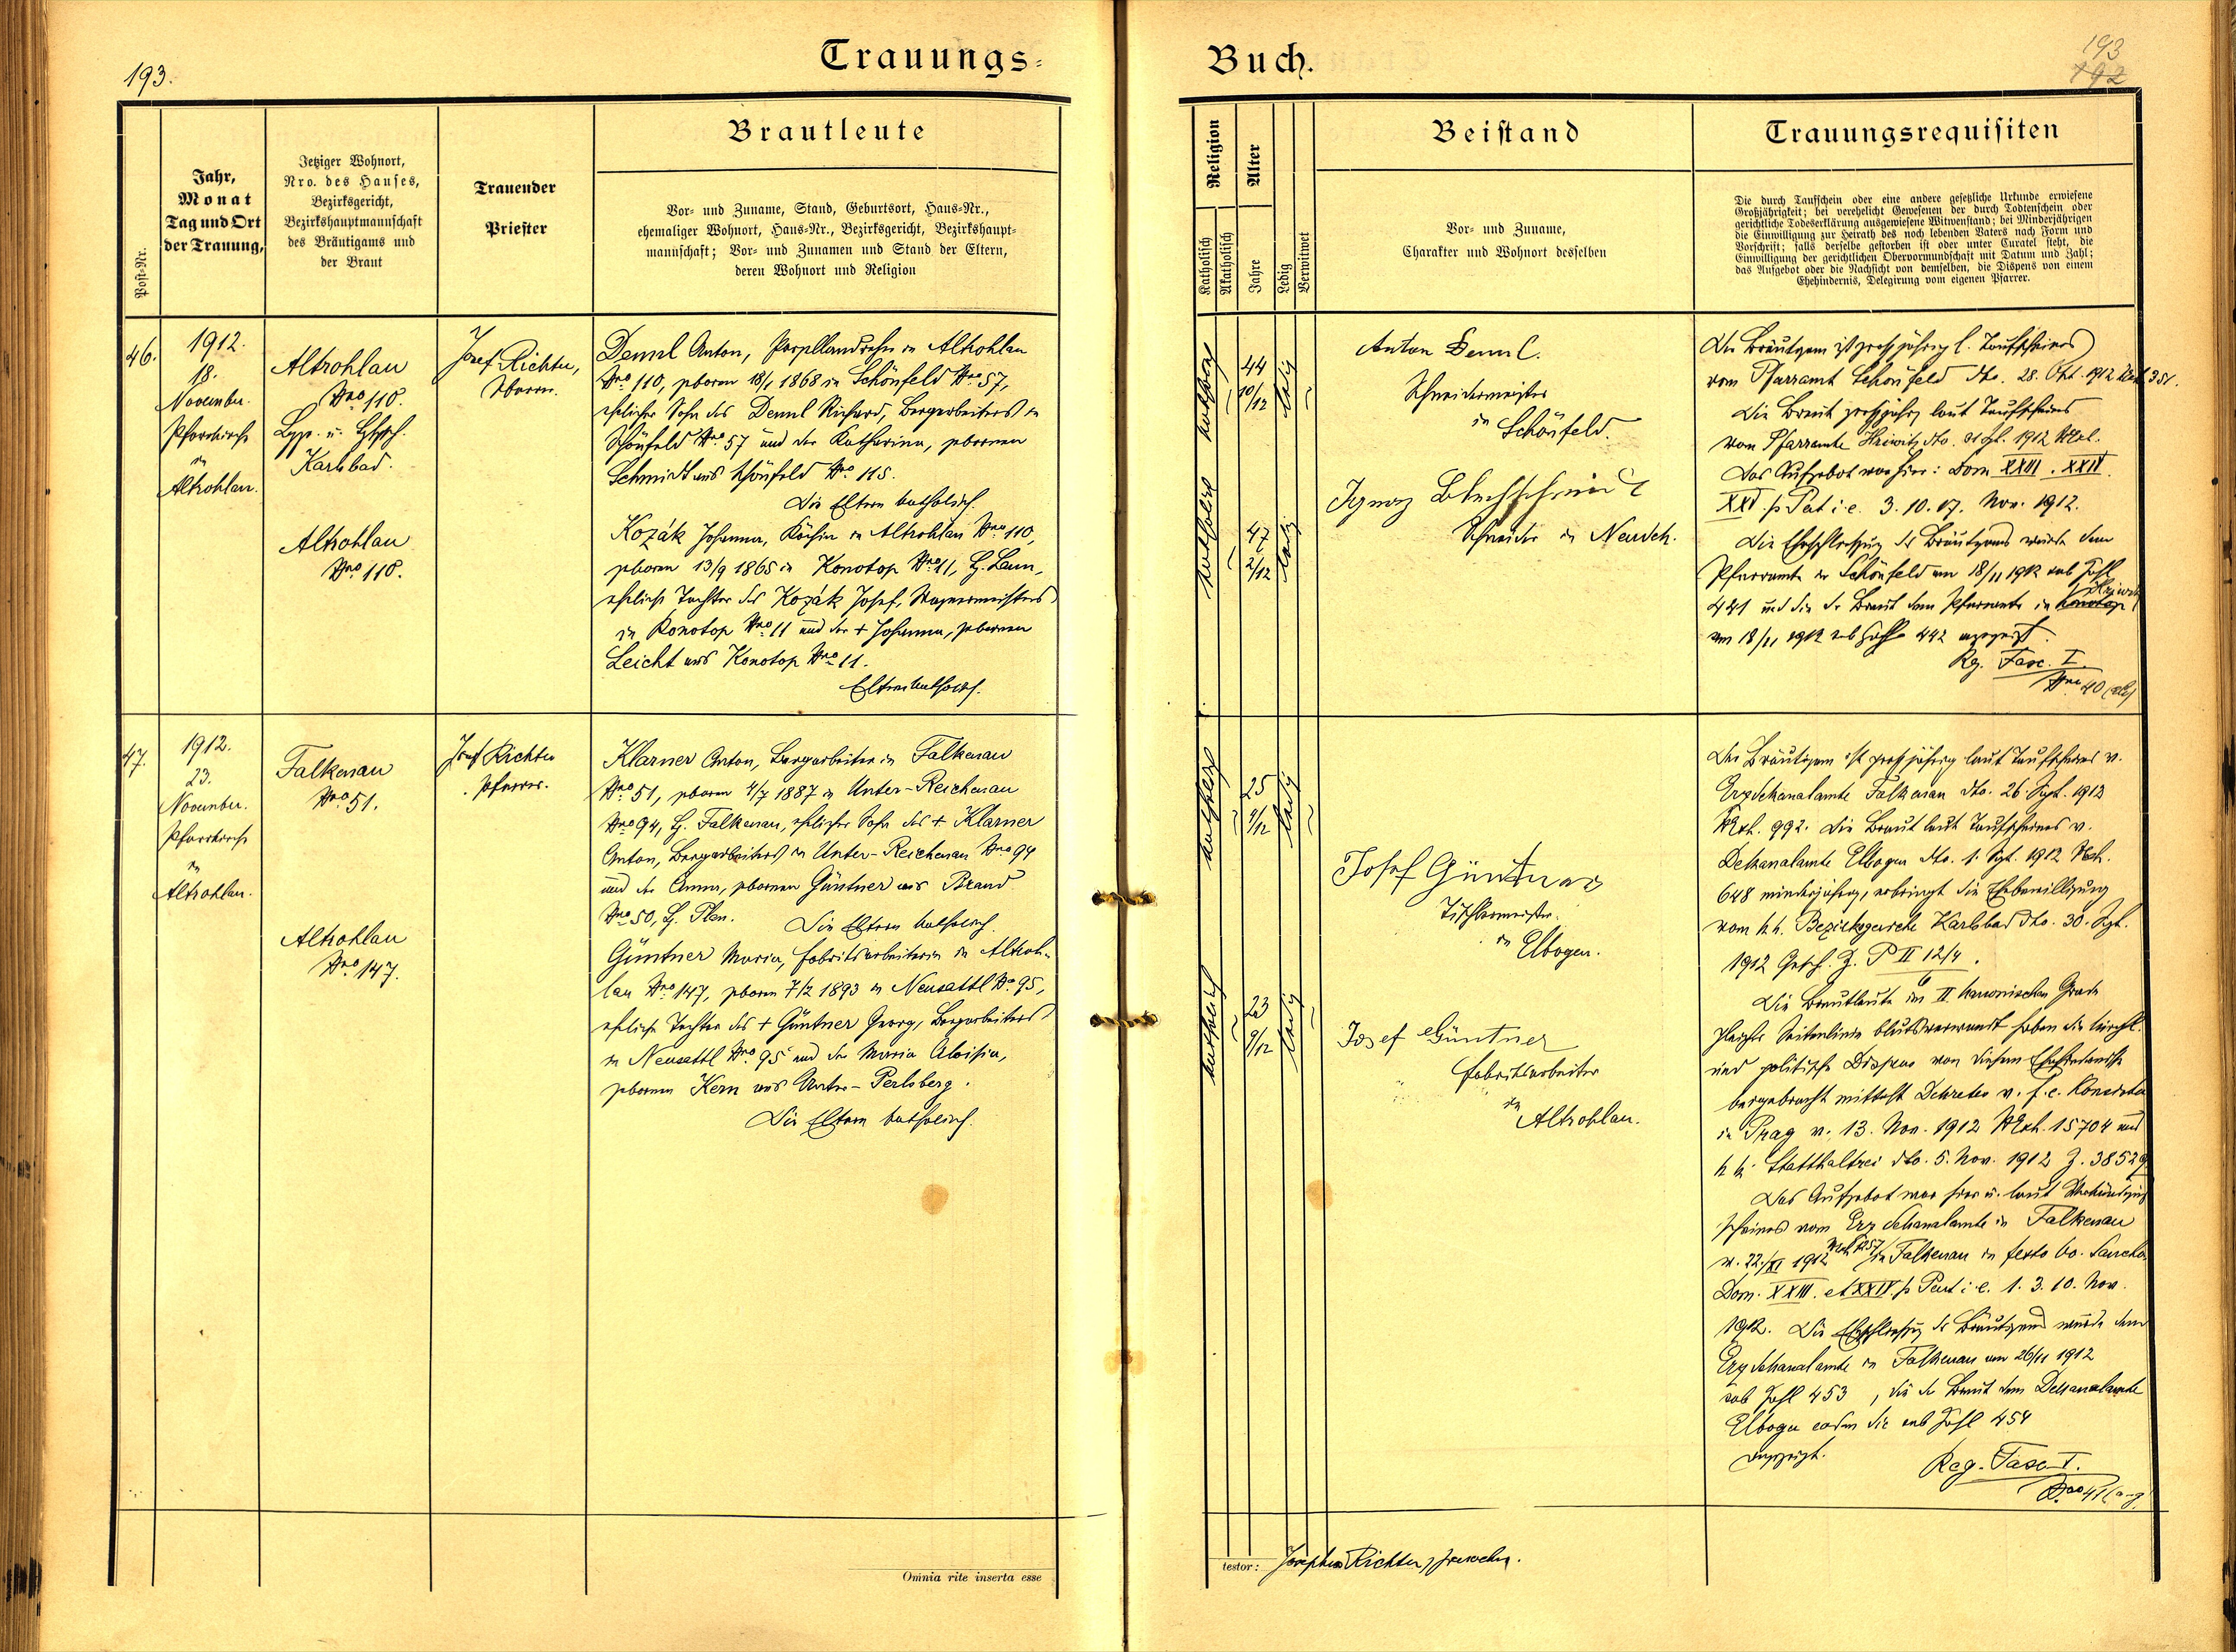 193.
Trauungs=
Post-Nr.
Jahr,
Monat
Tag und Ort
der Trauung,
Jetziger Wohnort,
Nro. des Hauses,
Bezirksgericht,
Bezirkshauptmannschaft
des Bräutigams und
der Braut
Trauender
Priester
Brautleute
Vor- und Zuname, Stand, Geburtsort, Haus-Nr.,
ehemaliger Wohnort, Haus-Nr., Bezirksgericht, Bezirkshaupt=
mannschaft; Vor- und Zunamen und Stand der Eltern,
deren Wohnort und Religion
46.
1912.
18.
November.
Pfarrkirche
in
Altrohlau.
Altrohlau
Nro 110.
Karlsbad.
Altrohlau
Nro 110.
Josef Richter,
Pfarrer.
Demml Anton, in Altrohlau
Nro 110, geboren 18/1 1868 in Schönfeld Nro 57,
ehelicher Sohn des Demml Richard, Bergarbeiters in
Schönfeld Nro 57 und der Katharina, geborenen
Schmidt aus Schönfeld Nro 115.
Die Eltern katholisch.
Kozák Johanna, Köchin in Altrohlau Nro 110,
geboren 13/9 1865 in Konotop Nro 11, H. Laun,
eheliche Tochter des Kozák Josef, Wagnermeisters
in Konotop Nro 11 und der + Johanna, geborenen
Leicht aus Konotop Nro 11.
Eltern katholisch.
47.
1912.
23.
November.
Pfarrkirche
in
Altrohlau.
Falkenau
Nro 51.
Altrohlau
Nro 147.
Josef Richter
Pfarrer.
Klarner Anton, Bergarbeiter in Falkenau
Nro 51, geboren 4/7 1887 in Unter-Reichenau
Nro 94, H. Falkenau, ehelicher Sohn des + Klarner
Anton, Bergarbeiters in Unter-Reichenau Nro 94
und der Anna, geborenen Güntner aus Brand
Nro 50, H. Plan. Die Eltern katholisch.
Güntner Maria, Fabriksarbeiterin in Altroh=
lau Nro 147, geboren 7/2 1893 in Neusattl Nro 95,
eheliche Tochter des + Güntner Georg, Bergarbeiters
in Neusattl Nro 95 und der Maria Aloisia,
geborenen Kern aus Unter-Perlsberg.
Die Eltern katholisch.
Omnia rite inserta esse
Buch.
193
192
Religion
Katholisch
Akatholisch
Alter
Jahre
Ledig
Verwitwet
Beistand
Vor- und Zuname,
Charakter und Wohnort desselben
Trauungsrequisiten
Die durch Taufschein oder eine andere gesetzliche Urkunde erwiesene
Großjährigkeit; bei verehelicht Gewesenen der durch Todtenschein oder
gerichtliche Todeserklärung ausgewiesene Witwenstand; bei Minderjährigen
die Einwilligung zur Heirath des noch lebenden Vaters nach Form und
Vorschrift; falls derselbe gestorben ist oder unter Curatel steht, die
Einwilligung der gerichtlichen Obervormundschaft mit Datum und Zahl;
das Aufgebot oder die Nachsicht von demselben, die Dispens von einem
Ehehindernis, Delegirung vom eigenen Pfarrer.
katholisch
44
10/12
ledig
katholisch
47
2/12
ledig
Anton Demml.
Schneidermeister
in Schönfeld.
Ignaz Blechschmidt
Schneider in Neudek.
Der Bräutigam ist großjährig l. Taufscheines
vom Pfarramt Schönfeld dto. 28. Okt. 1912 351.
Die Braut großjährig laut Taufscheines
vom Pfarramte Hriwitz dto. 1912
Das Aufgebot war hier: Dom XXIII. XXIV
XXV p. Pent i. e. 3. 10. 17. Nov. 1912.
Die Eheschließung des Bräutigams wurde dem
Pfarramte in Schönfeld am 18/11 1912 sub Zahl
441 und die der Braut dem Pfarramte in Konotop Hriwitz
am 18/11 1912 sub Zahl 442 angezeigt.
Reg. Fasc. I.
Nro 40
katholisch
25
4/12
ledig
katholisch
23
9/12
ledig
Josef Güntner
Tischlermeister
in
Elbogen.
Josef Güntner
Fabriksarbeiter
in
Altrohlau.
Der Bräutigam ist großjährig laut Taufscheines v.
Erzdekanalamte Falkenau dto. 26. Sept. 1912
NExh. 992. Die Braut laut Taufscheines v.
Dekanalamte Elbogen dto. 1. Sept. 1912 NExh.
648 minderjährig, erbringt die Ehebewilligung
vom k.k. Bezirksgerichte Karlsbad dto. 30. Sept.
1912 Gesch. Z. P II 12/4
6
Die Brautleute im II kanonischen Grade
gleicher Seitenlinie blutsverwandt haben die kirchl.
und politische Dispens von diesem Ehehindernisse
beigebracht mittelst Dekretes v. f. e. Konsistor.
in Prag v. 13. Nov. 1912 NExh. 15704 und
k k. Statthalterei dto. 5. Nov. 1912 Z. 38529
Das Aufgebot war hier u. laut Verkündigungs
scheines vom Erzdekanalamte in Falkenau
v. 22./XI 1912 in Falkenau in festo oo. Sanctor.
Dom. XXIII. et XXIV. p Pent i. e. 1. 3. 10. Nov.
1912. Die Eheschließung des Bräutigams wurde dem
Erzdekanalamte in Falkenau am 26/11 1912
sub Zahl 453, die der Braut dem Dekanalamte
Elbogen eodem die sub Zahl 454
angezeigt.
Reg. Fasc. I.
Nro 41 (a-g)
testor: Josephus Richter,